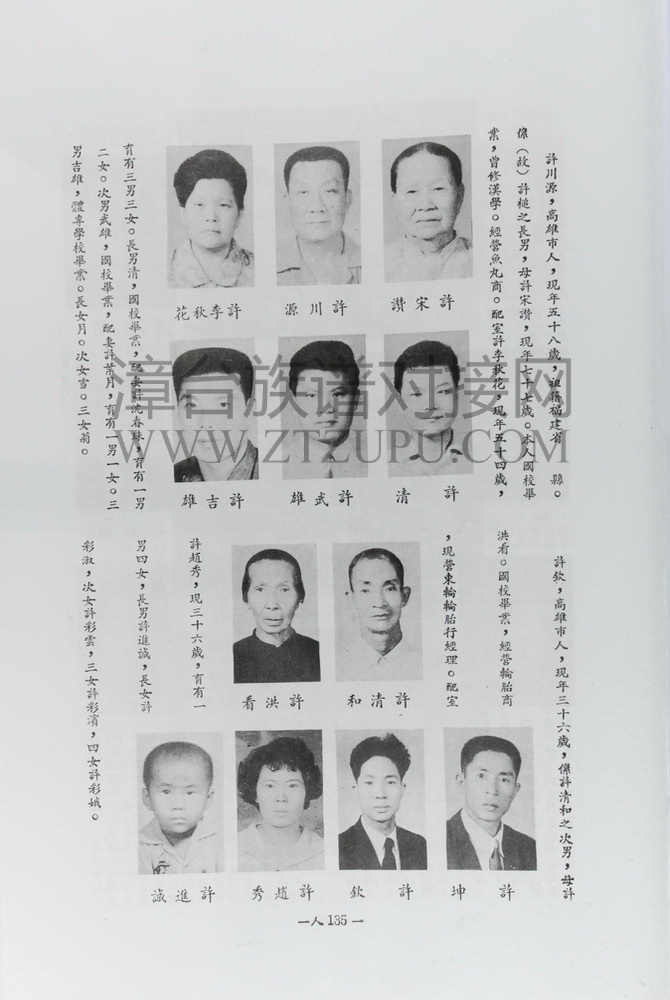 許川源，高雄市人，現年五十八歲，祖籍福建省　縣。
係（故）許槌之長男，母許宋讚，現年七十七歲。本人國校畢
業，曾修漢學。經營魚丸商。配室許李秋花，現年五十四歲，
育有三男三女。長男清，國校畢業，配妻許沈春珠，育有一男
二女。次男武雄，國校畢業，配妻許葉月，育有一男一女。三
男吉雄，體專學校畢業。長女月。次女雪。三女菊。
許宋讚
許川源
許李秋花
許清
許武雄
許吉雄
漳台族谱对接网
WWW.ZTZUPU.COM
許欽，高雄市人，現年三十六歲，係許清和之次男，母許
洪看。國校畢業，經營輪胎商
，現營東輪輪胎行經理。配室
許趙秀，現三十六歲，育有一
男四女，長男許進誠，長女許
彩淑，次女許彩雲，三女許彩濱，四女許彩娥。
許清和
許洪看
許坤
許欽
許趙秀
許進誠
—人135—